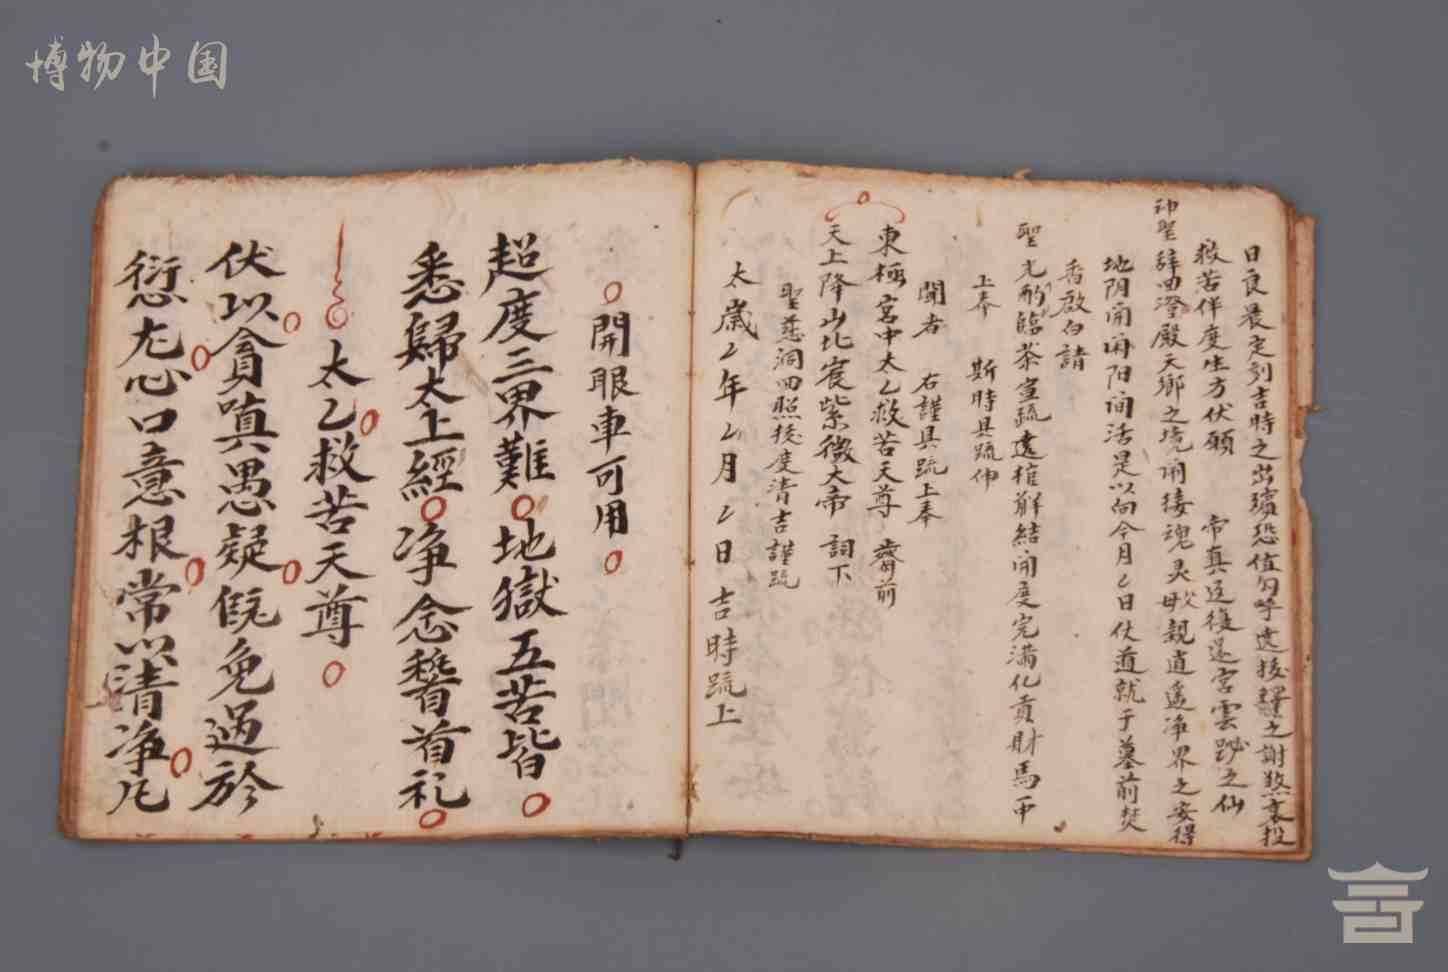 博物中国
日良晨定刻吉時之出殯恐值勾呼迭接繹之謝煞哀投
救苦伴度生方伏願 帝真返後還宮雲
之仙
神聖辞回澄殿天鄉之境開接魂灵
親道遥净界之安得
地阴
阳间活是以向今月乙日伏道就于墓前焚
香啟白請
聖尤
臨茶宣疏遠
解結開度完满化貢財馬
上奉 斯時具疏伸
聞者 右謹具疏上奉
東極宮中太乙救苦天尊 齋前
天上降山北宸紫微大帝 詞下
聖慈洞回照後度清吉謹疏
太歲乙年乙月乙日吉時疏上
開眼車可用
超度三界難地獄五苦皆
悉歸太上經净念稽首礼
太乙救苦天尊
伏以貪嗔愚疑
免過於
愆
心口意根常以清净